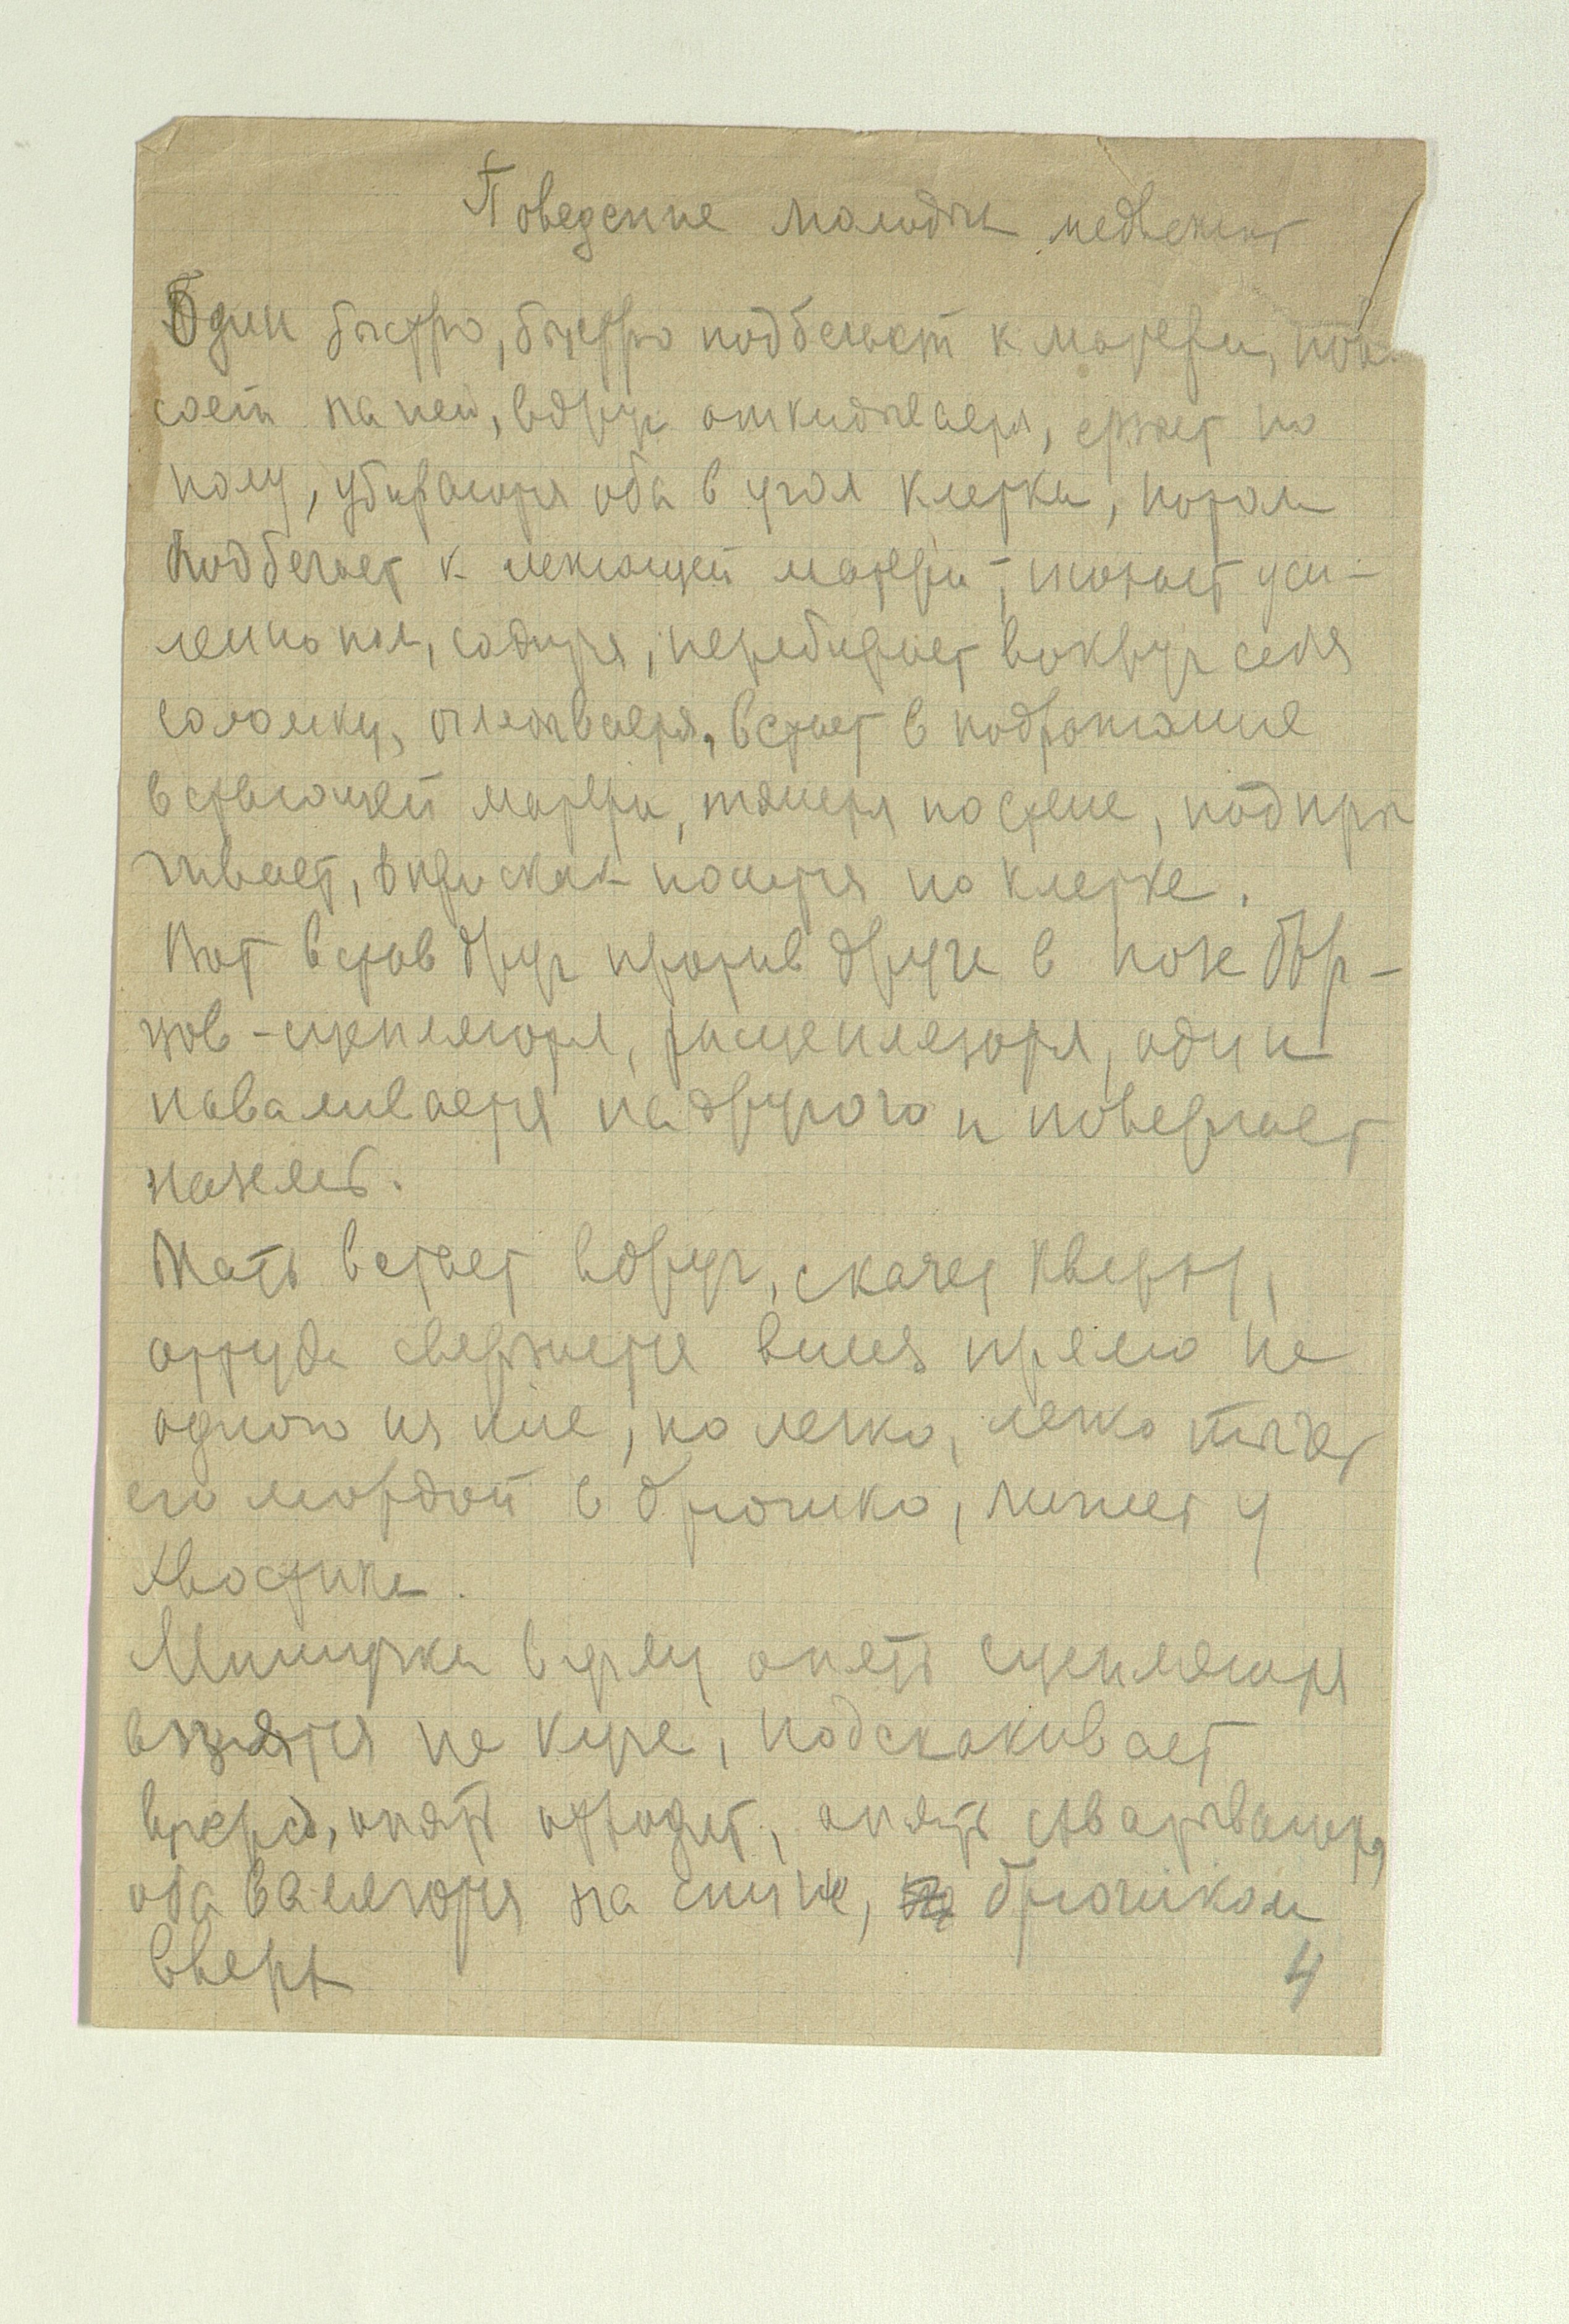 Поведение молодых медвежат
Один быстро, быстро подбегает к матери, пов-
сает на ней, вдруг откидывается, ерзает по
полу, убираются оба в угол клетки, потом
подбегает к лежащей матери, нюхает уси-
ленно пол, садится, перебирает вокруг себя
соломку, оглядывается, встает в подражание
встающей матери, тянется по стене, подпры
гивает, вприскак носится по клетке.
Вот встав друг против друга в позе бор-
цов - сцепляются, расцепляются, один
наваливается на другого и повергает
наземь.
Мать встает вдруг, скачет кверху,
оттуда свергается вниз прямо на
одного из них, но легко, легко тычет
его мордой в брюшко, лижет у
хвостика.
Мишутки сразу опять сцепляются
возятся на куче, подскакивает
вперед, опять отходит, опять схватываются,
оба валяются на спине, брюшком
вверх
4